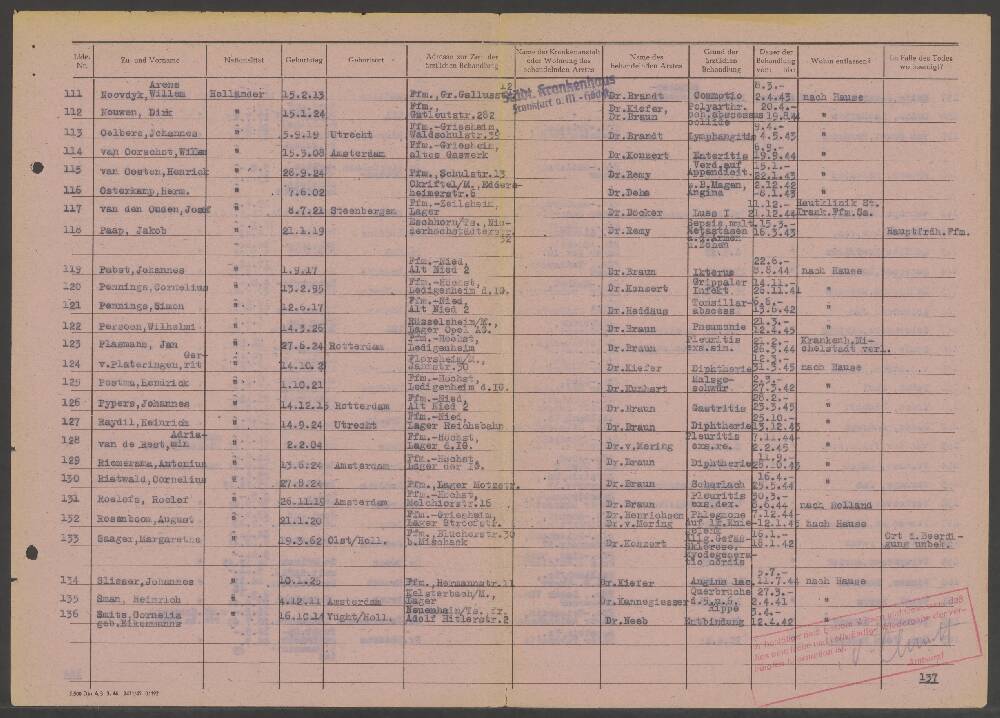 Lfde. Nr. Zu- und Vorname Nationalität Geburtstag Geburtsort Adresse zur Zeit der ärztlichen Behandlung Name der Krankenanstalt oder Wohnung des behandelnden Arztes Name des behandelnden Arztes Grund der ärztlichen Behandlung Dauer der Behandlung vom bis Wohin entlassen? Im Falle des Todes wo beerdigt?
Städt. Krankenhaus
Frankfurt a. M.-Höchst
Arens 12 8.3.-
111 Noovdyk, Willem Holländer 15.2.13 Ffm., Gr.Galluss Dr.Brandt Cosmotio 2.4.43 nach Hause
112 Nouwen, Dirk " 15.1.24 Ffm., Gutleutstr.262 Dr.Kiefer, Dr.Braun Polyarthr. 20.4.- 19.8.44 "
113 Oelbers, Johannes " 5.9.19 Utrecht Ffm.-Griesheim, Waldschulstr.39 Dr.Brandt Lymphangitis 9.4.- 4.5.43 "
114 van Oorschot, Willem " 15.9.08 Amsterdam Ffm.-Griesheim, altes Gaswerk Dr.Konzert Enteritis 6.9.- 19.9.44 "
115 van Oosten, Henrick " 26.9.24 Ffm., Schulstr.13 Dr.Remy Verd.auf Appendicit. 15.1.- 22.1.43 "
116 Osterkamp, Herm. " 7.6.02 Okriftel/M., Edders-heimerstr.6 Dr.Dehs Angina 2.12.42 -8.1.43 "
117 van den Ouden, Josef " 8.7.21 Steenbergen Ffm.-Zeilsheim, Lager Dr.Böcker Lues I 11.12.- 21.12.44 Hautklinik St. Krank.Ffm.Sa.
118 Paap, Jakob " 21.1.19 Eschhorn/Ts., Nie-derhöchstädterstr. 52 Dr.Remy Sepsis mult. Metastasen a.d.Armen 15.3.- 16.3.43 Hauptfrdh.Ffm.
119 Pabst, Johannes " 1.9.17 Ffm.-Nied, Alt Nied 2 Dr.Braun Ikterus 22.6.- 8.8.44 nach Hause
120 Pennings, Cornelius " 13.2.95 Ffm.-Höchst, Ledigenheim d.IG. Dr.Konzert Grippaler Infekt 14.11.- 26.11.41 "
121 Pennings, Simon " 12.6.17 Ffm.-Nied, Alt Nied 2 Dr.Haddaus Tonsillar-abscess 6.6.- 13.6.42 "
122 Persoon, Wilhelmi " 14.3.26 Rüsselsheim/M., Lager Opel AG. Dr.Braun Pneumonie 21.3.- 12.4.45 "
123 Plasmans, Jan " 27.6.24 Rotterdam Ffm.-Höchst, Ledigenheim Dr.Braun Pleuritis exs.sin. 21.2.- 26.3.44 Krankenh.Mi-chelstadt verl.
124 v.Plateringen, Ger-rit " 14.10.2 Flörsheim/M., Jahnstr.30 Dr.Kiefer Diphtherie 12.3.- 31.3.45 nach Hause
125 Postma, Hendrick " 1.10.21 Ffm.-Höchst, Ledigenheim d.IG. Dr.Kuzhart Malsge-schwür 2.3.- 27.3.42 "
126 Pypers, Johannes " 14.12.15 Rotterdam Ffm.-Nied, Alt Nied 2 Dr.Braun Gastritis 28.2.- 23.3.45 "
127 Raydil, Heinrich " 14.9.24 Utrecht Ffm.-Nied, Lager Reichsbahn Dr.Braun Diphtherie 25.10.- 13.12.43 "
128 van de Rest, Adria-min " 2.2.04 Ffm.-Höchst, Lager d.IG. Dr.v.Mering Pleuritis exs.re. 7.11.44 2.2.45 "
129 Riemersma, Antonius " 13.6.24 Amsterdam Ffm.-Höchst, Lager der IG. Dr.Braun Diphtherie 11.9.- 26.10.43 "
130 Rietwald, Cornelius " 27.8.24 Ffm., Lager Motzstr. Dr.Braun Scharlach 16.4.- 25.5.44 "
131 Roelofs, Roelof " 26.11.19 Amsterdam Ffm.-Höchst, Melchiorstr.16 Dr.Braun Pleuritis exs.dex. 30.3.- 6.6.44 nach Holland
132 Rosenboom, August " 21.1.20 Ffm.-Griesheim, Lager Stroofstr. Dr.Henrichsen Dr.v.Mering Phlegmone auf li.Knie 7.12.44 -12.1.45 nach Hause
133 Saager, Margarethe " 19.3.62 Olst/Holl. Ffm., Blücherstr.30 b.Mischack Dr.Konzert Allg.Gefäs-sklerose, Myodegenera-tio cordis 16.1.- 18.1.42 Ort d.Beerdi-gung unbek.
134 Slisser, Johannes " 10.1.25 Ffm., Hermannstr.11 Dr.Kiefer Angina lac. 5.7.- 11.7.44 nach Hause
135 Sman, Heinrich " 4.12.11 Amsterdam Kelsterbach/M., Lager Dr.Kannegiesser Querbruch d.5.u.6. Rippe 27.3.- 2.4.41 "
136 Smits, Cornelia geb.Eikemanns " 16.10.14 Vught/Holl. Neuenhain/Ts. fr. Adolf Hitlerstr.2 Dr.Neeb Entbindung 3.4.- 12.4.42 "
Amtsarzt
137